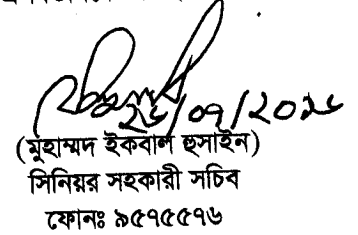 ২৬/০৭/২০১৮
(মুহাম্মদ ইকবাল হুসাইন)
সিনিয়র সহকারী সচিব
ফোনঃ ৯৫৭৫৫৭৬